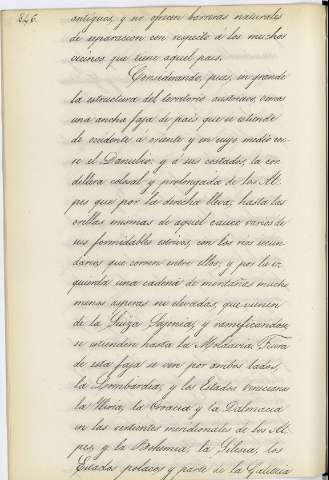 646.
antiguos, y no ofrecen barreras naturales
de separacion con respecto á los muchos
vecinos que tiene aquel pais.
Considerando, pues, en grande
la estructura del territorio austriaco, vemos
una ancha faja de pais que se estiende
de occidente á oriente y en cuyo medio cor-
re el Danubio; y á sus costados, la cor-
dillera colosal y prolongada de los Al-
pes que por la derecha lleva, hasta las
orillas mismas de aquel cauce varios de
sus formidables estrivos, con los rios secun-
darios que corren entre ellos; y por la iz-
quierda una cadena de montañas mucho
menos asperas ni elevadas, que vienen
de la Suiza Sajonica, y ramificandose
se estienden hasta la Moldavia. Fuera
de esta faja se ven por ambos lados,
la Lombardia, y los Estados Venecianos
la Iliria, la Croacia y la Dalmacia
en las vertientes meridionales de los Al-
pes, y la Bohemia, la Silesia, los
Estados polacos y parte de la Galitcia